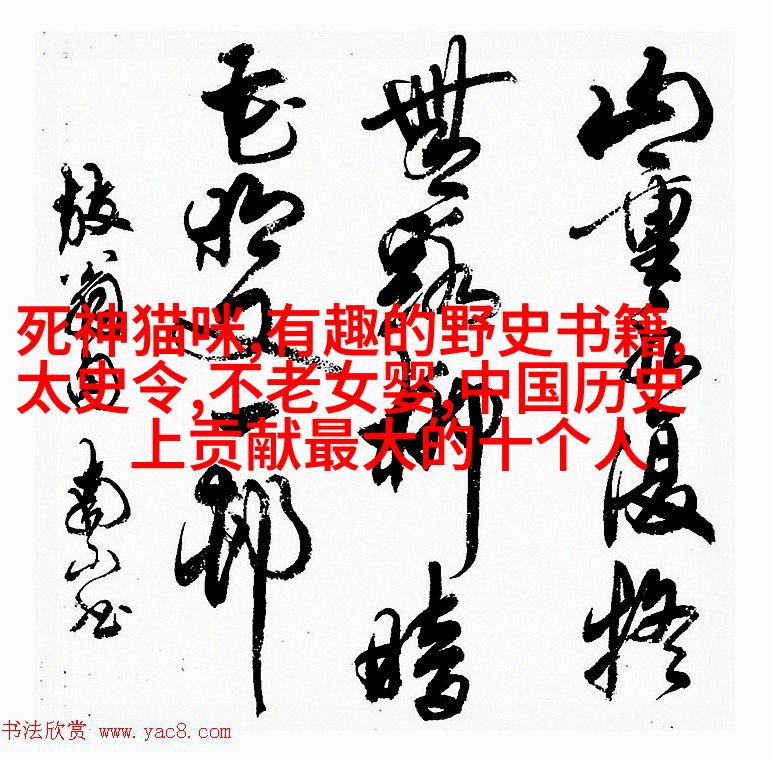 山重水復疑
無路柳暗
花明又一邨
放翁句 南
死神猫咪,有趣的野史书籍,
太史令,不老女婴,中国历史
上贡献最大的十个人
书法欣赏 www.yac8.com